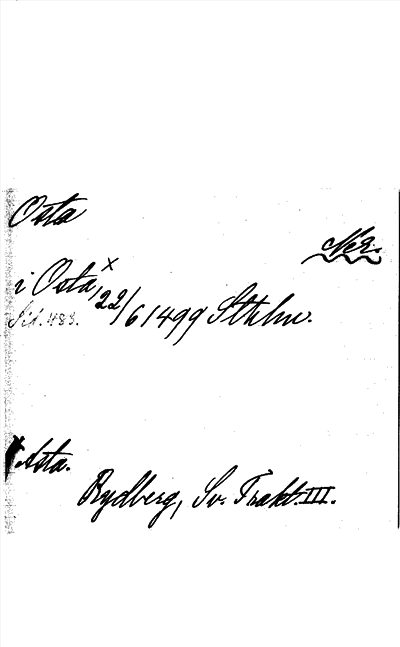 Osta
Ner.
i Osta, x 22/6 1499 Sthlm.
Sid. 483.
x Asta.
Rydberg, Sv. Trakt. III.